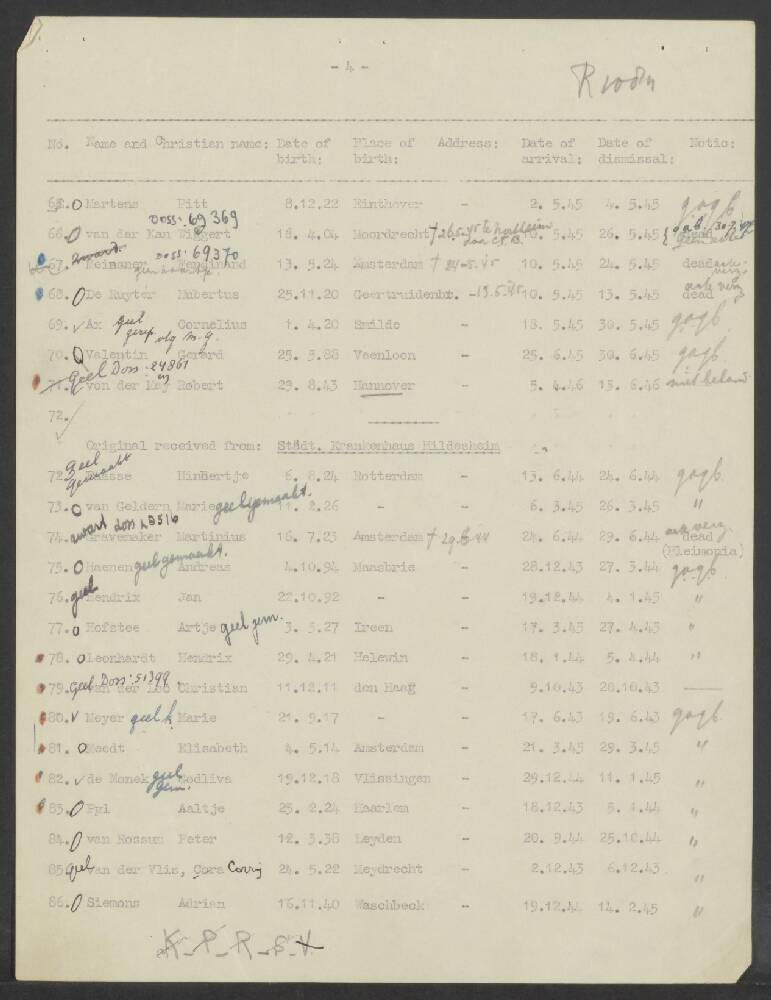 - 4 -
No. Name and Christian name: Date of birth: Place of birth: Address: Date of arrival: Date of dismissal: Notic:
65. O Martens Pitt 8.12.22 Einthover - 2. 5.45 4. 5.45 gogb
Doss. 69369
66. O van der Kan Wiggert 18. 4.04 Moordrecht † 26.5.45 10. 5.45 26. 5.45
zwart doss. 69370
67. Meinsner Ferdinand 13. 5.24 Amsterdam † 24-5.45 10. 5.45 24. 5.45 dead
68. O De Ruyter Hubertus 25.11.20 Geertruidenbr. -13.5.45 10. 5.45 13. 5.45 dead
69. √ Ax geel Cornelius 1. 4.20 Smilde - 18. 5.45 30. 5.45 gogb.
70. O Valentin Gerard 25. 3.88 Veenloon - 25. 6.45 30. 6.45 gogb
Geel Doss. 24861
71. von der May Robert 29. 8.43 Hannover - 5. 4.46 13. 6.46 niet beland
72.
Original received from: Städt. Krankenhaus Hildesheim
geel gemaakt
72. Daasse Hinbertje 6. 8.24 Rotterdam - 13. 6.44 24. 6.44 gogb
73. O van Geldern Marie geel gemaakt. 11. 2.26 - - 6. 3.45 26. 3.45 "
zwart doss
74. Gravemaker Martinius 16. 7.23 Amsterdam † 29.6.44 24. 6.44 29. 6.44 dead
(Pleimonia)
75. O Haenen geel gemaakt. Andreas 4.10.94 Maasbrie - 28.12.43 27. 3.44 gogb
76. geel Hendrix Jan 22.10.92 - - 19.12.44 4. 1.45 "
77. O Hofstee Artje geel gem. 3. 5.27 Ireen - 17. 3.45 27. 4.45 "
78. O Leonhardt Hendrix 29. 4.21 Helewin - 18. 1.44 5. 4.44 "
79. Geel Doss: 51399 van der Loo Christian 11.12.11 den Haag - 9.10.43 28.10.43 —
80. √ Meyer geel k Marie 21. 9.17 - - 17. 6.43 19. 6.43 gogb
81. O Moedt Elisabeth 4. 5.14 Amsterdam - 21. 3.45 29. 3.45 "
82. √ de Monek geel gem. Godliva 19.12.18 Vlissingen - 29.12.44 11. 1.45 "
83. O Pyl Aaltje 25. 2.24 Haarlem - 18.12.43 5. 1.44 "
84. O van Rossum Peter 12. 3.38 Leyden - 20. 9.44 25.10.44 "
85 geel van der Vlis, Cora Corrij 24. 5.22 Meydrecht - 2.12.43 6.12.43 "
86. O Siemons Adrian 16.11.40 Waschbeek - 19.12.44 14. 2.45 "
K-P-R-S-V